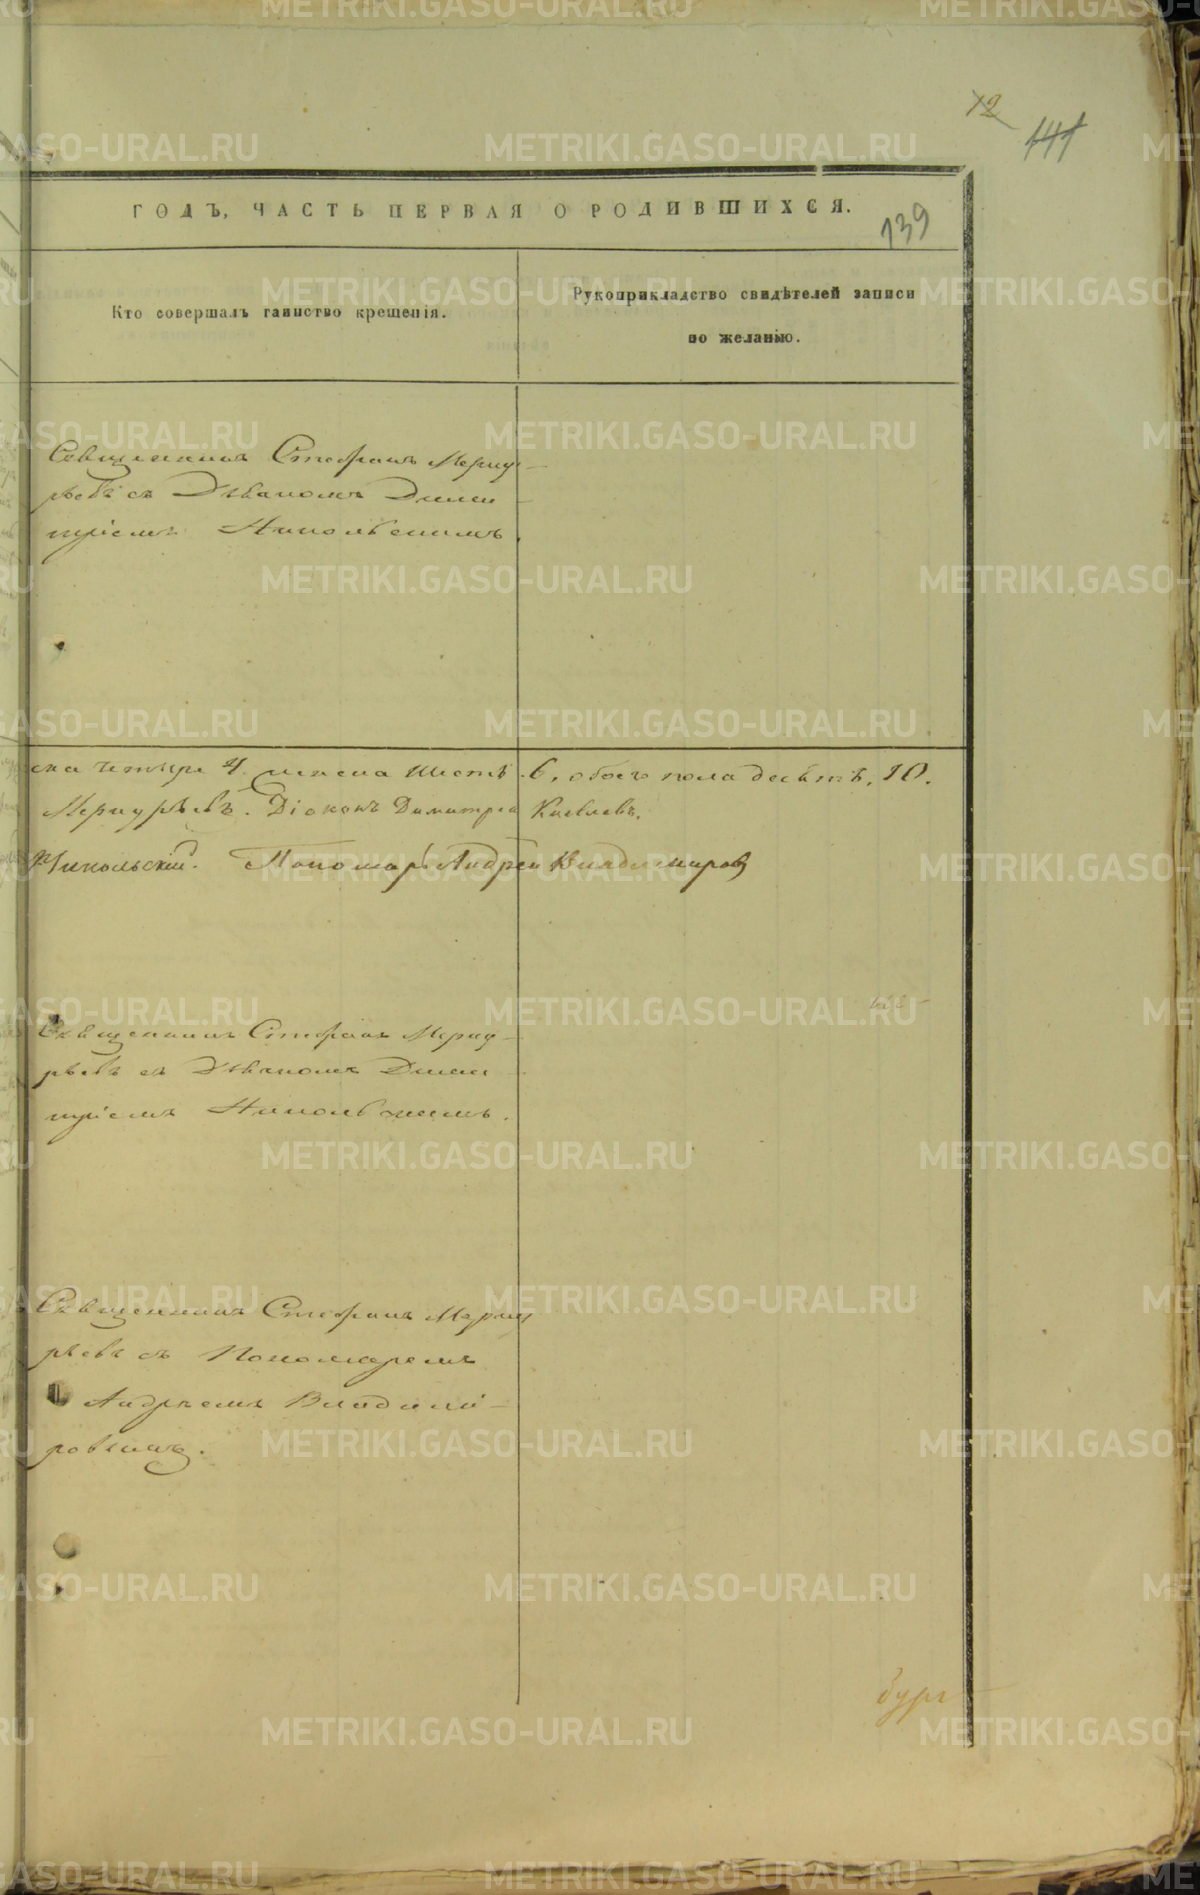 12
141
ГОДЪ, ЧАСТЬ ПЕРВАЯ О РОДИВШИХСЯ.
139
Кто совершалъ таинство крещенія.
Рукоприкладство свидѣтелей записи
по желанію.
Священникъ Стефанъ Меркурь-
рьевъ съ Дьякономъ Дими
тріемъ Никольскимъ
ска четыре 4. женска шесть 6, обоего пола десять, 10.
Меркурьевъ. Діаконъ Димитрій
Никольскій. Пономарь Андрей Владимиров
Священникъ Стефанъ Меркy-
рьевъ съ Дьякономъ Дими
тріемъ Никольскимъ.
Священникъ Стефанъ Мерку
рьевъ съ Пономаремъ
Андреемъ Владими-
ровымъ.
бург
METRIKI.GASO-URAL.RU